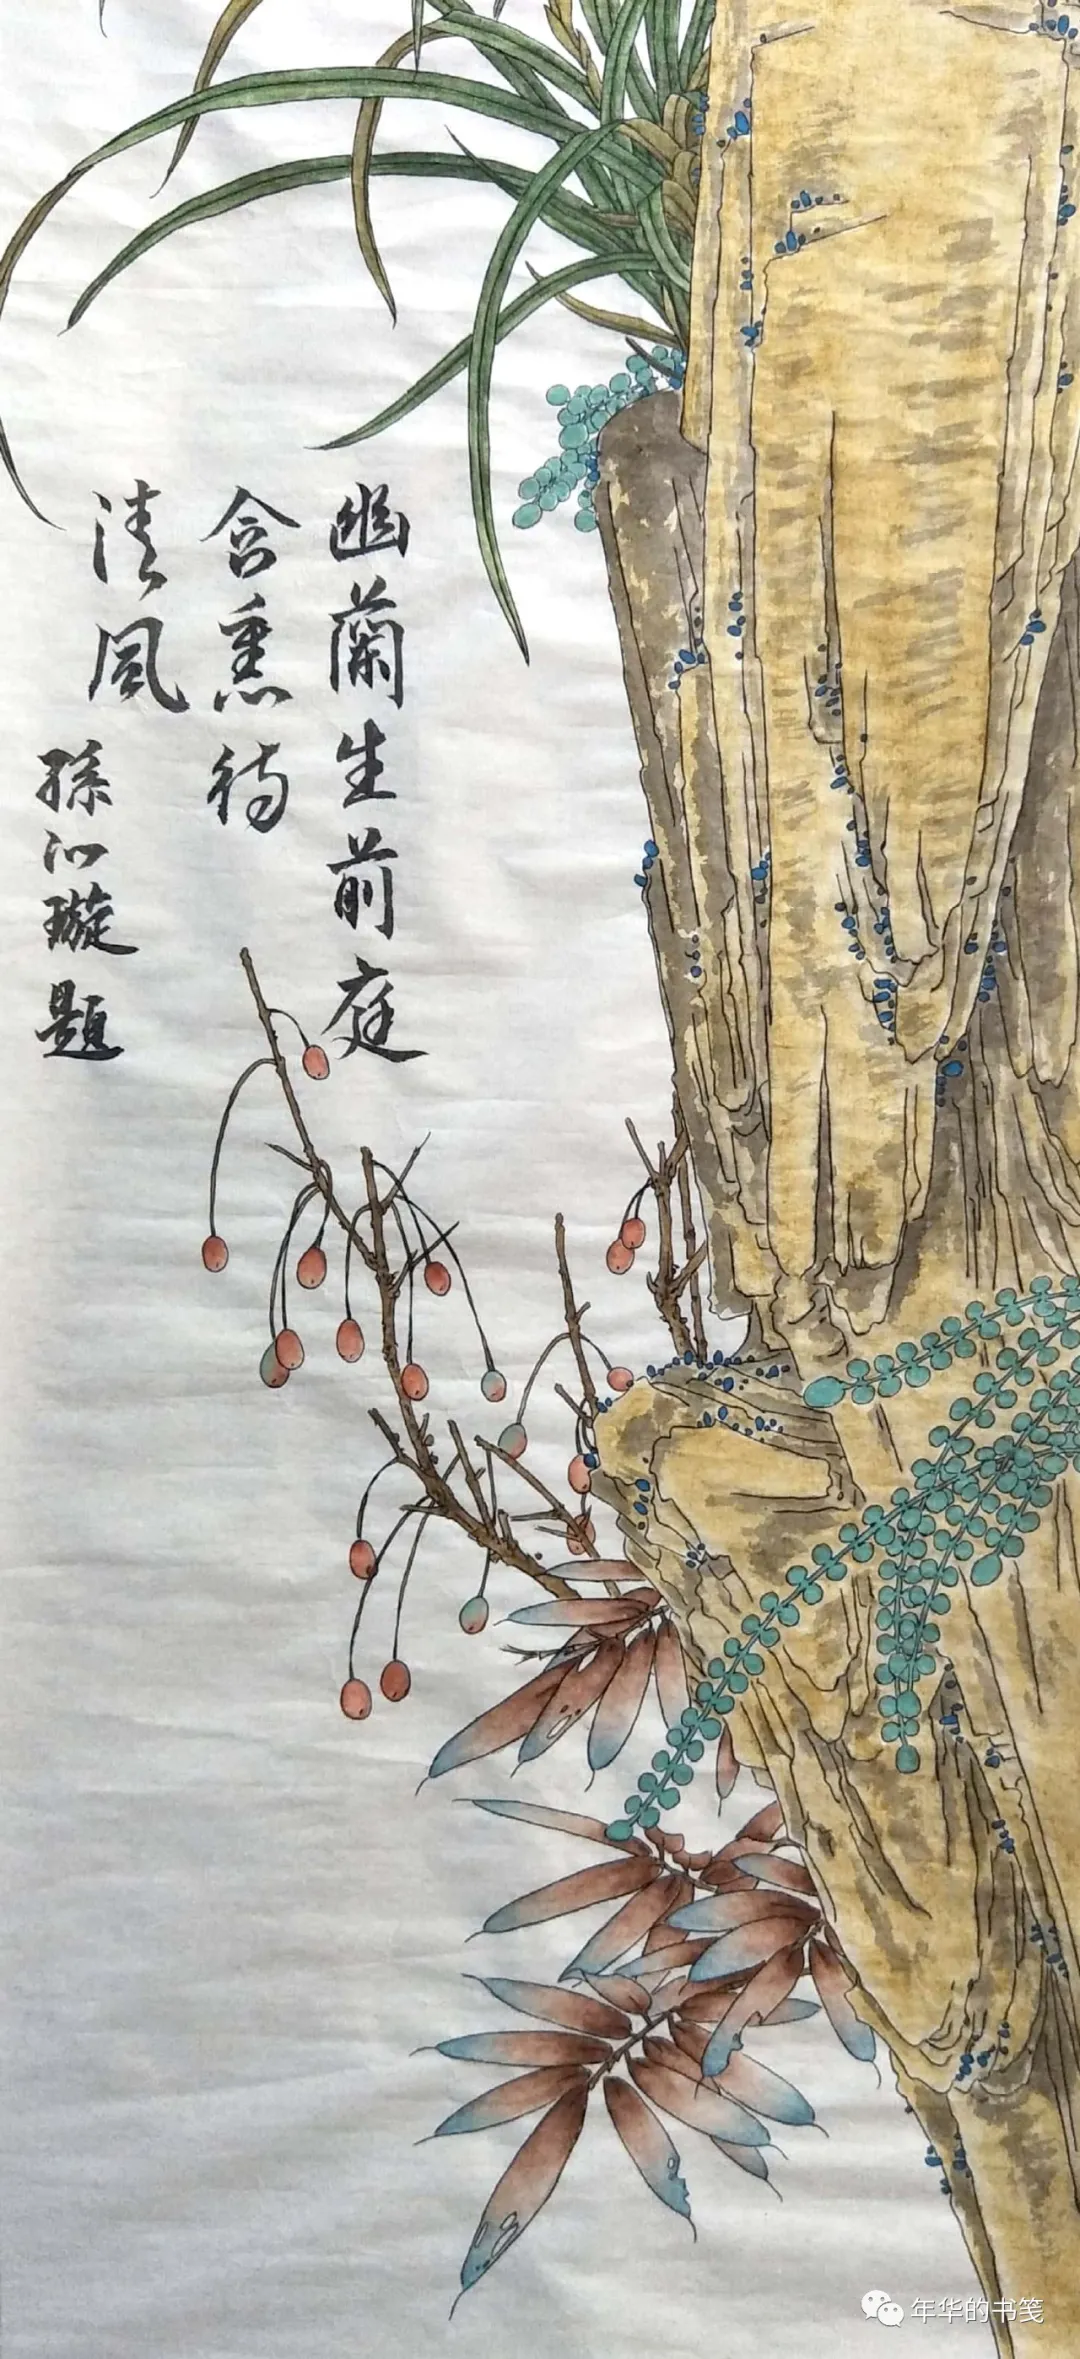 幽蘭生前庭
含熏待
清風
孫沁璇題
年华的书笺